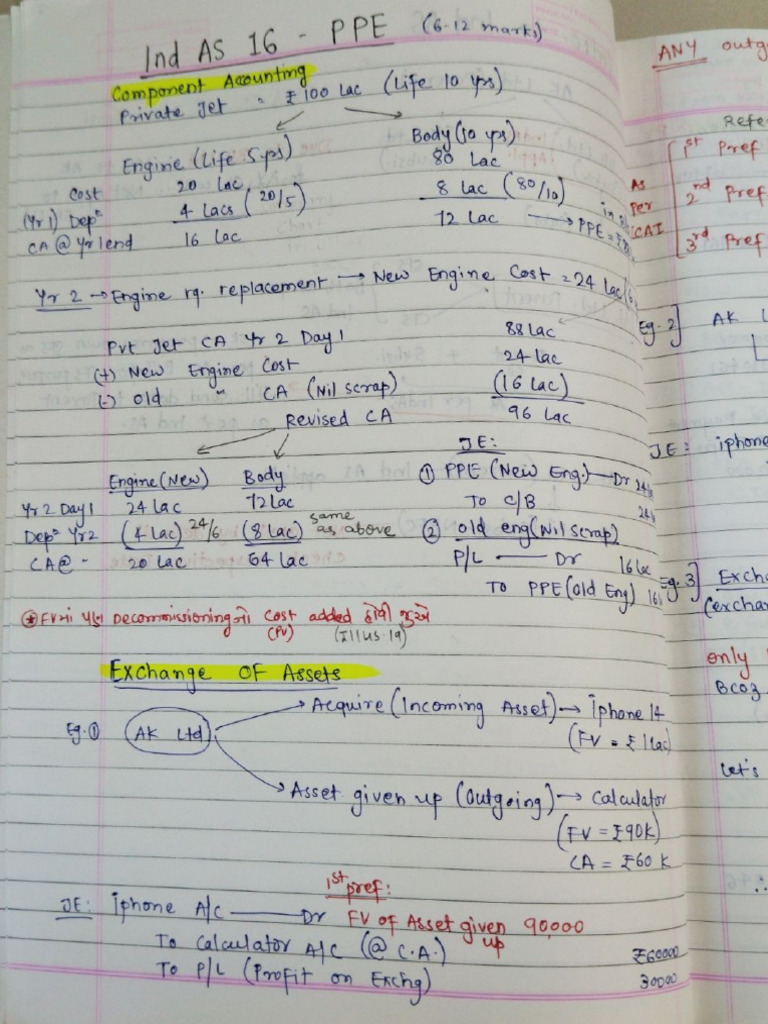 Ind AS 16 - PPE (6-12 marks)
Component Accounting
Private Jet = ₹100 Lac (Life 10 yrs)
Engine (Life 5 yrs) Body (10 yrs)
Cost 20 Lac 80 Lac
(Yr 1) Depⁿ 4 Lacs (20/5) 8 Lac (80/10)
CA @ Yr 1 end 16 Lac 72 Lac → PPE =
Yr 2 → Engine rq. replacement → New Engine Cost = 24 Lac
Pvt Jet CA Yr 2 Day 1 88 Lac
(+) New Engine Cost 24 Lac
(-) Old " CA (Nil scrap) (16 Lac)
Revised CA 96 Lac
Engine (New) Body JE:
① PPE (New Eng.) — Dr
Yr 2 Day 1 24 Lac 72 Lac To C/B
Depⁿ Yr2 (4 Lac) 24/6 (8 Lac) same as above ② old eng (Nil scrap)
CA@ - 20 Lac 64 Lac P/L — Dr 16 Lac
To PPE (Old Eng)
⊛ FVમાં પણ Decommissioningનો Cost added હોવી જુએ
(PV) (Illus. 19)
Exchange OF Assets
Eg. ① AK Ltd. → Acquire (Incoming Asset) → iphone 14
(FV = ₹1 Lac)
→ Asset given up (Outgoing) → Calculator
(FV = ₹90K)
CA = ₹60 K
1st pref:
JE: iphone A/c — Dr FV of Asset given up 90,000
To Calculator A/c (@ C.A.) ₹60000
To P/L (Profit on Exchg) 30000
ANY
1st Pref
As per ICAI 2nd Pref
3rd Pref
Eg. 2] AK
JE: iphone
Eg. 3]
only
Let's